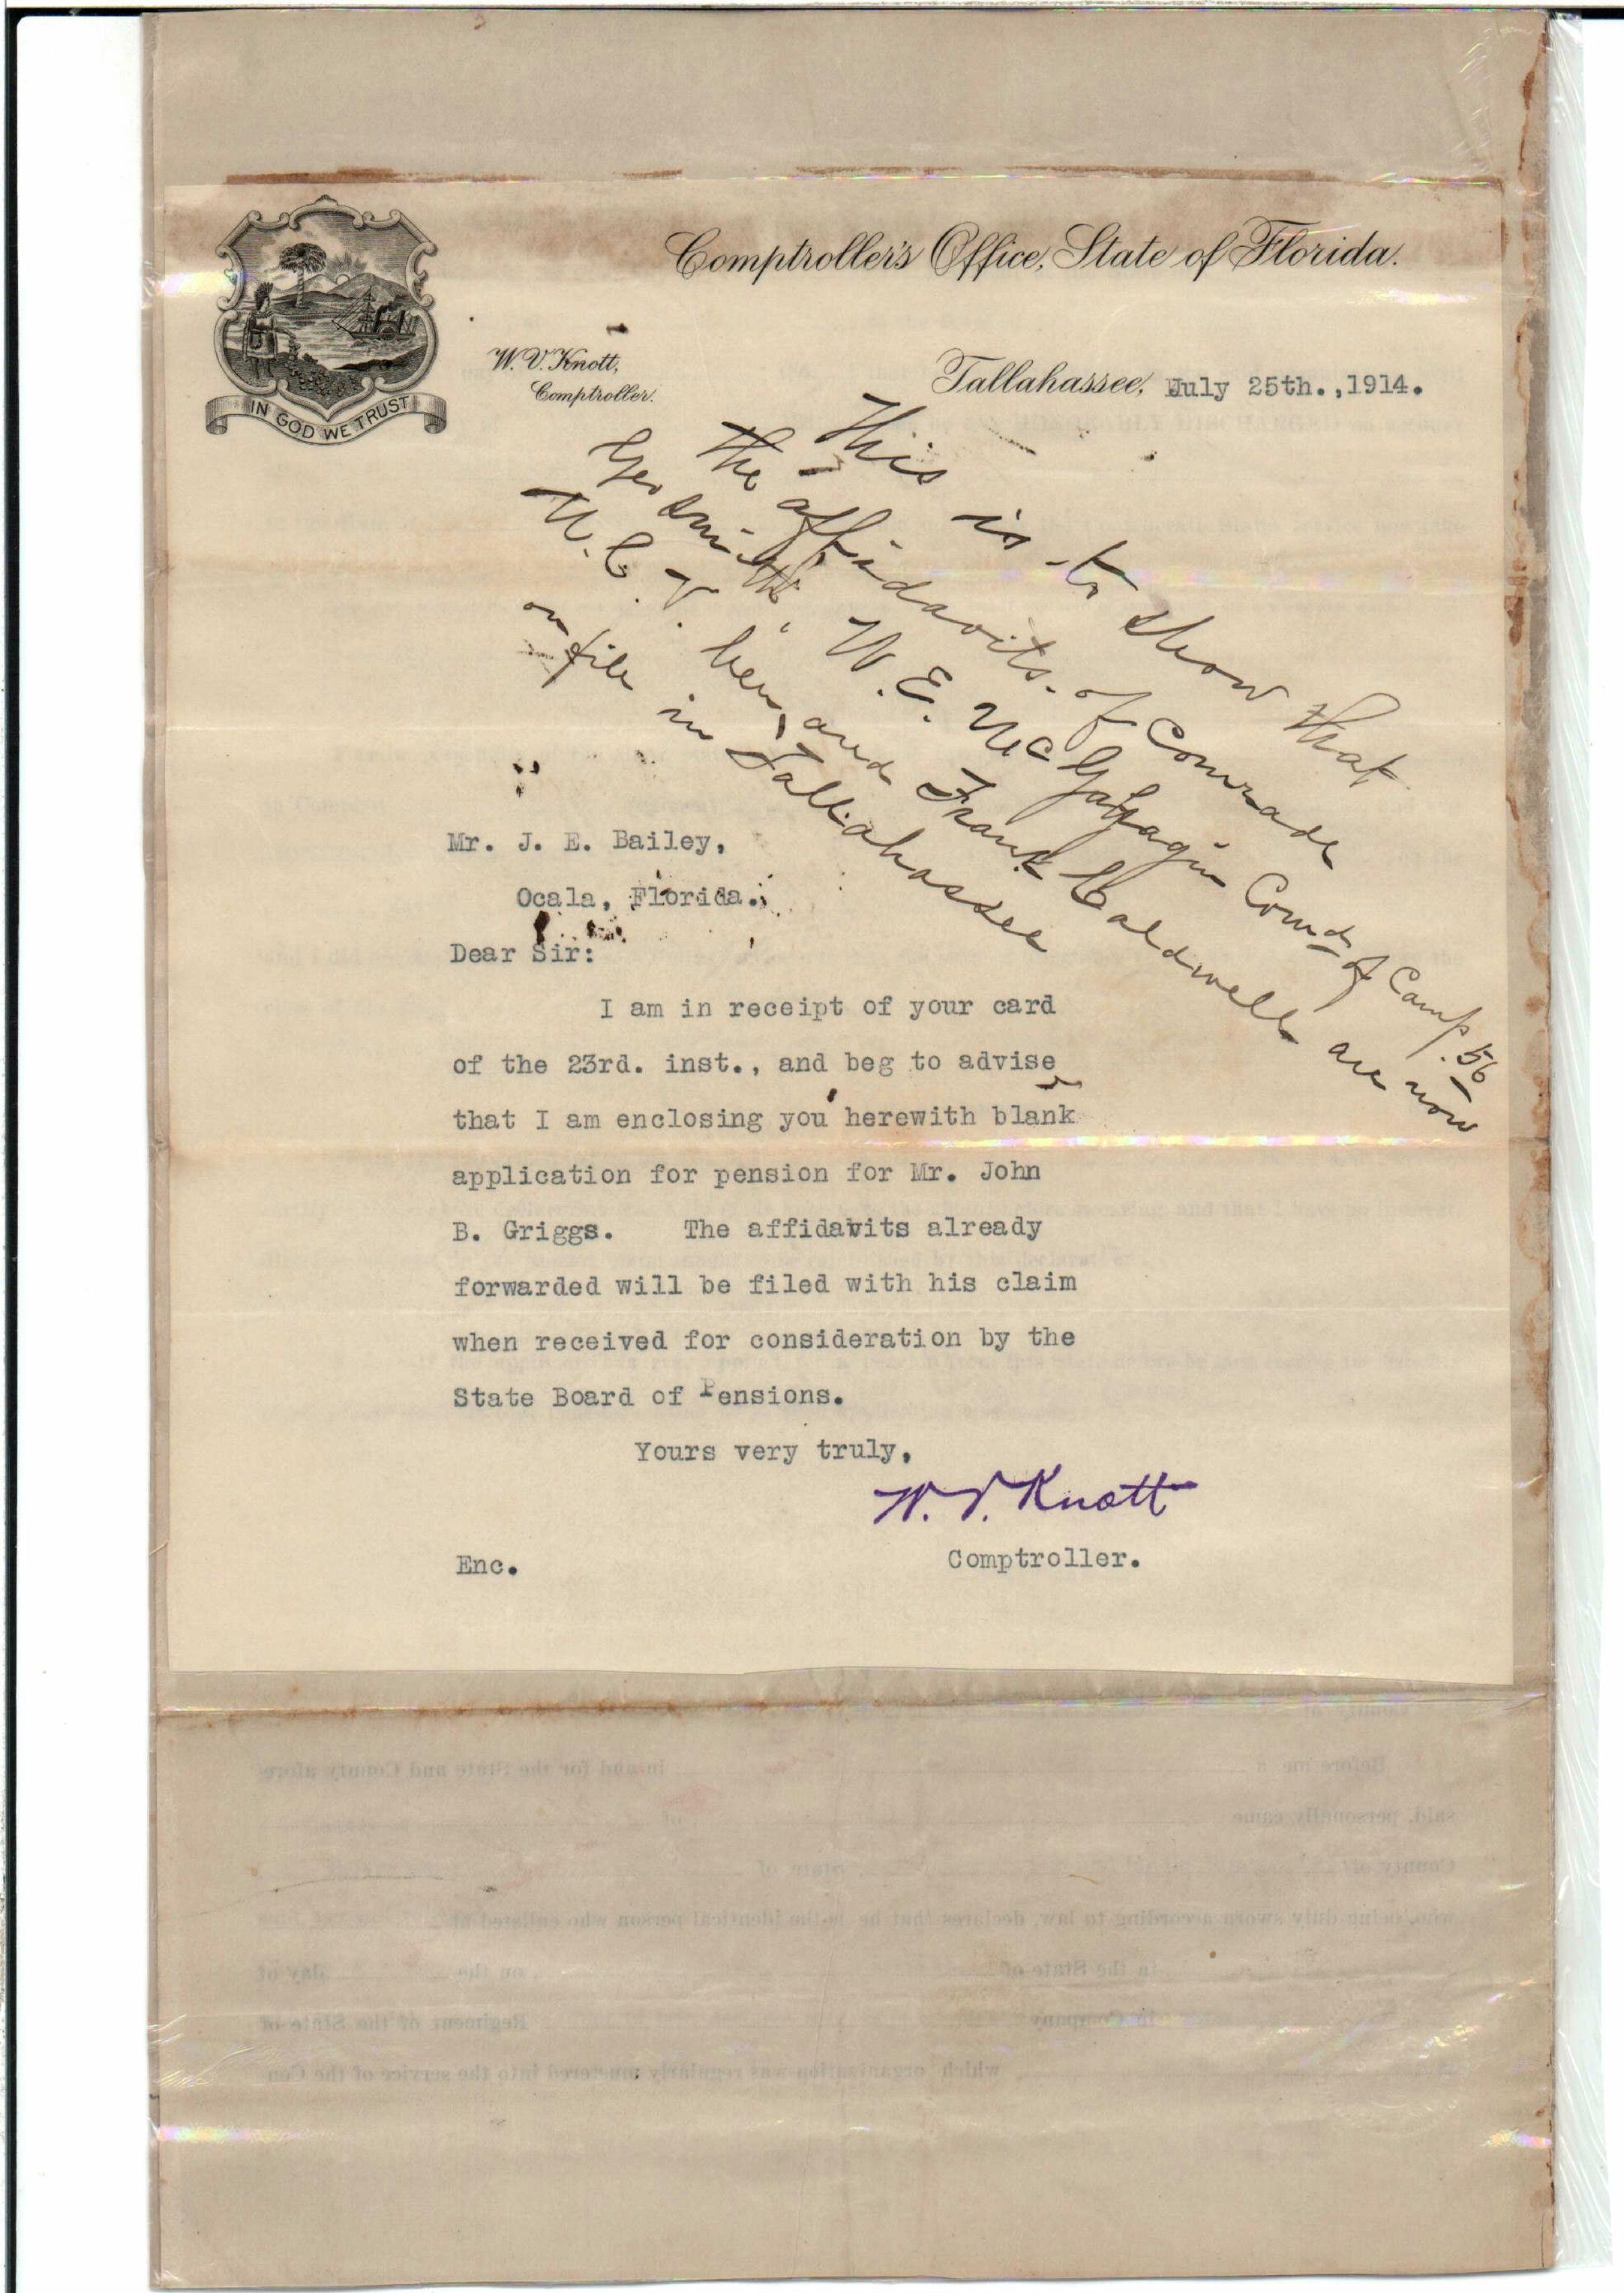 Comptroller's Office, State of Florida.
W. V. Knott,
Comptroller.
IN GOD WE TRUST
Tallahassee, July 25th.,1914.
This is to show that
the affidavits of Comrade
Geo Smith, W. E. McGahagin Comd of Camp. 56
U. C. V. here, and Frank Caldwell are now
on file in Tallahassee
Mr. J. E. Bailey,
Ocala, Florida.
Dear Sir:
I am in receipt of your card
of the 23rd. inst., and beg to advise
that I am enclosing you herewith blank
application for pension for Mr. John
B. Griggs. The affidavits already
forwarded will be filed with his claim
when received for consideration by the
State Board of Pensions.
Yours very truly,
W. V. Knott
Comptroller.
Enc.
Before me a in and for the State and County afore
said, personally came of
County of State of
who being duly sworn according to law, declares that he is the identical person who enlisted at
in the State of on the day of
in Company Regiment of the State of
which organization was regularly mustered into the service of the Con